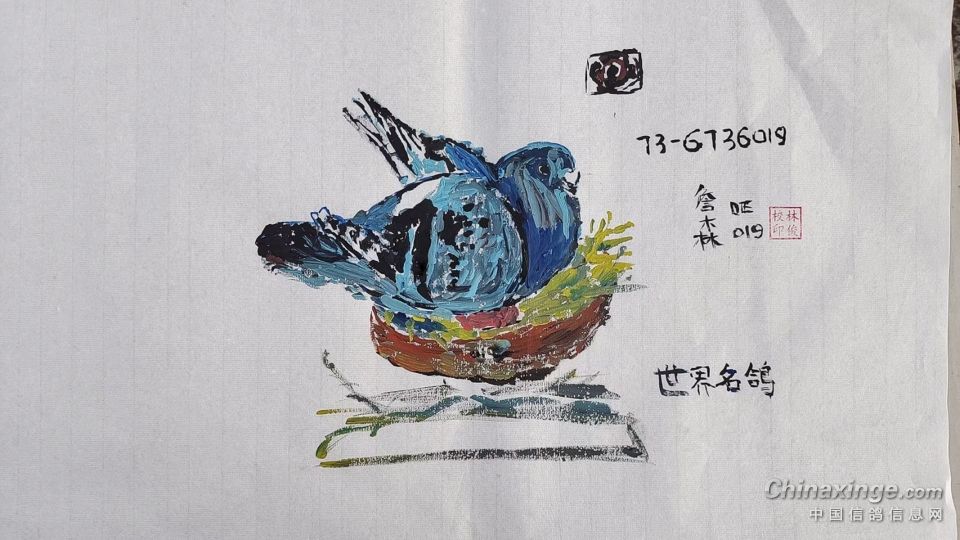 73-6736019
詹森 DE 019
林俊校印
世界名鸽
Chinaxinge.com
中国信鸽信息网